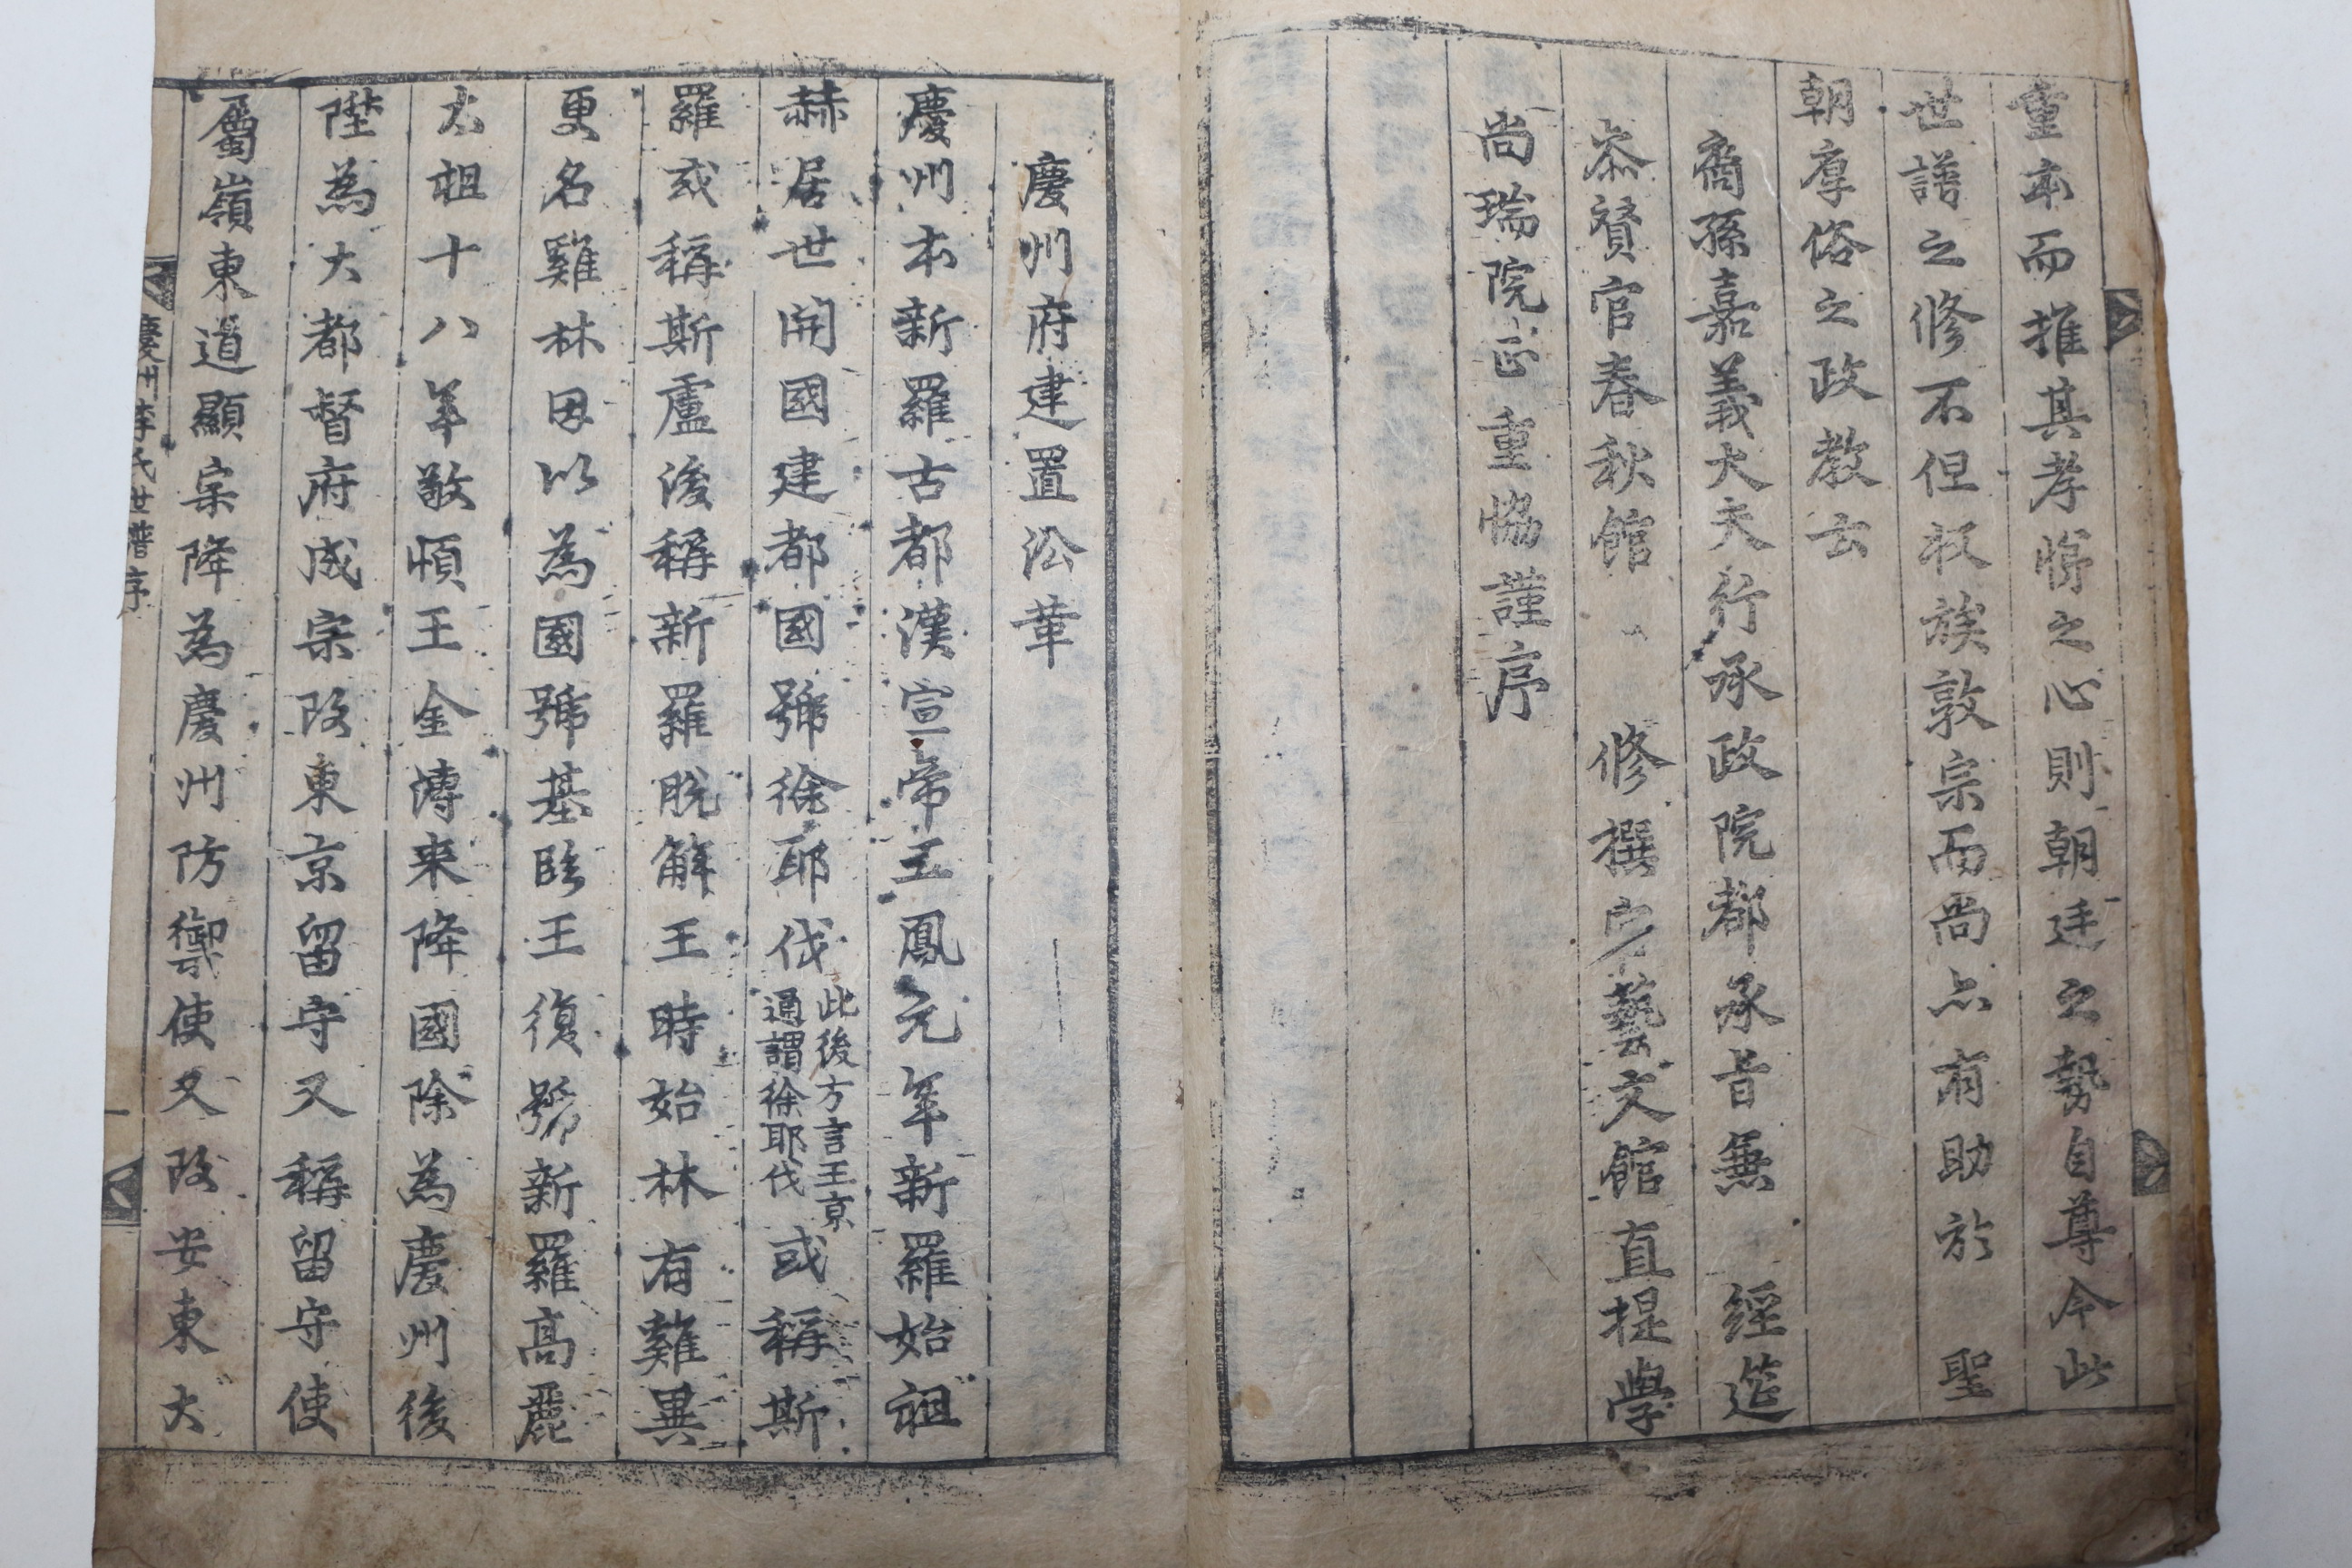 重本而推其孝悌之心則朝廷之勢自尊今此
世譜之修不但收族敦宗而尚亦有助於 聖
朝厚俗之政教云
裔孫嘉義大夫行承政院都承旨兼 經筵
參贊官春秋館 修撰官藝文館直提學
尚瑞院正重協謹序
慶州府建置沿革
慶州本新羅古都漢宣帝五鳳元年新羅始祖
赫居世開國建都國號徐耶伐此後方言王京通謂徐耶伐或稱斯
羅或稱斯盧後稱新羅脫解王時始林有雞異
更名雞林因以為國號基臨王復號新羅高麗
太祖十八年敬順王金溥来降國除為慶州後
陞為大都督府成宗改東京留守又稱留守使
屬嶺東道顯宗降為慶州防禦使又改安東大
慶州李氏世譜序
一